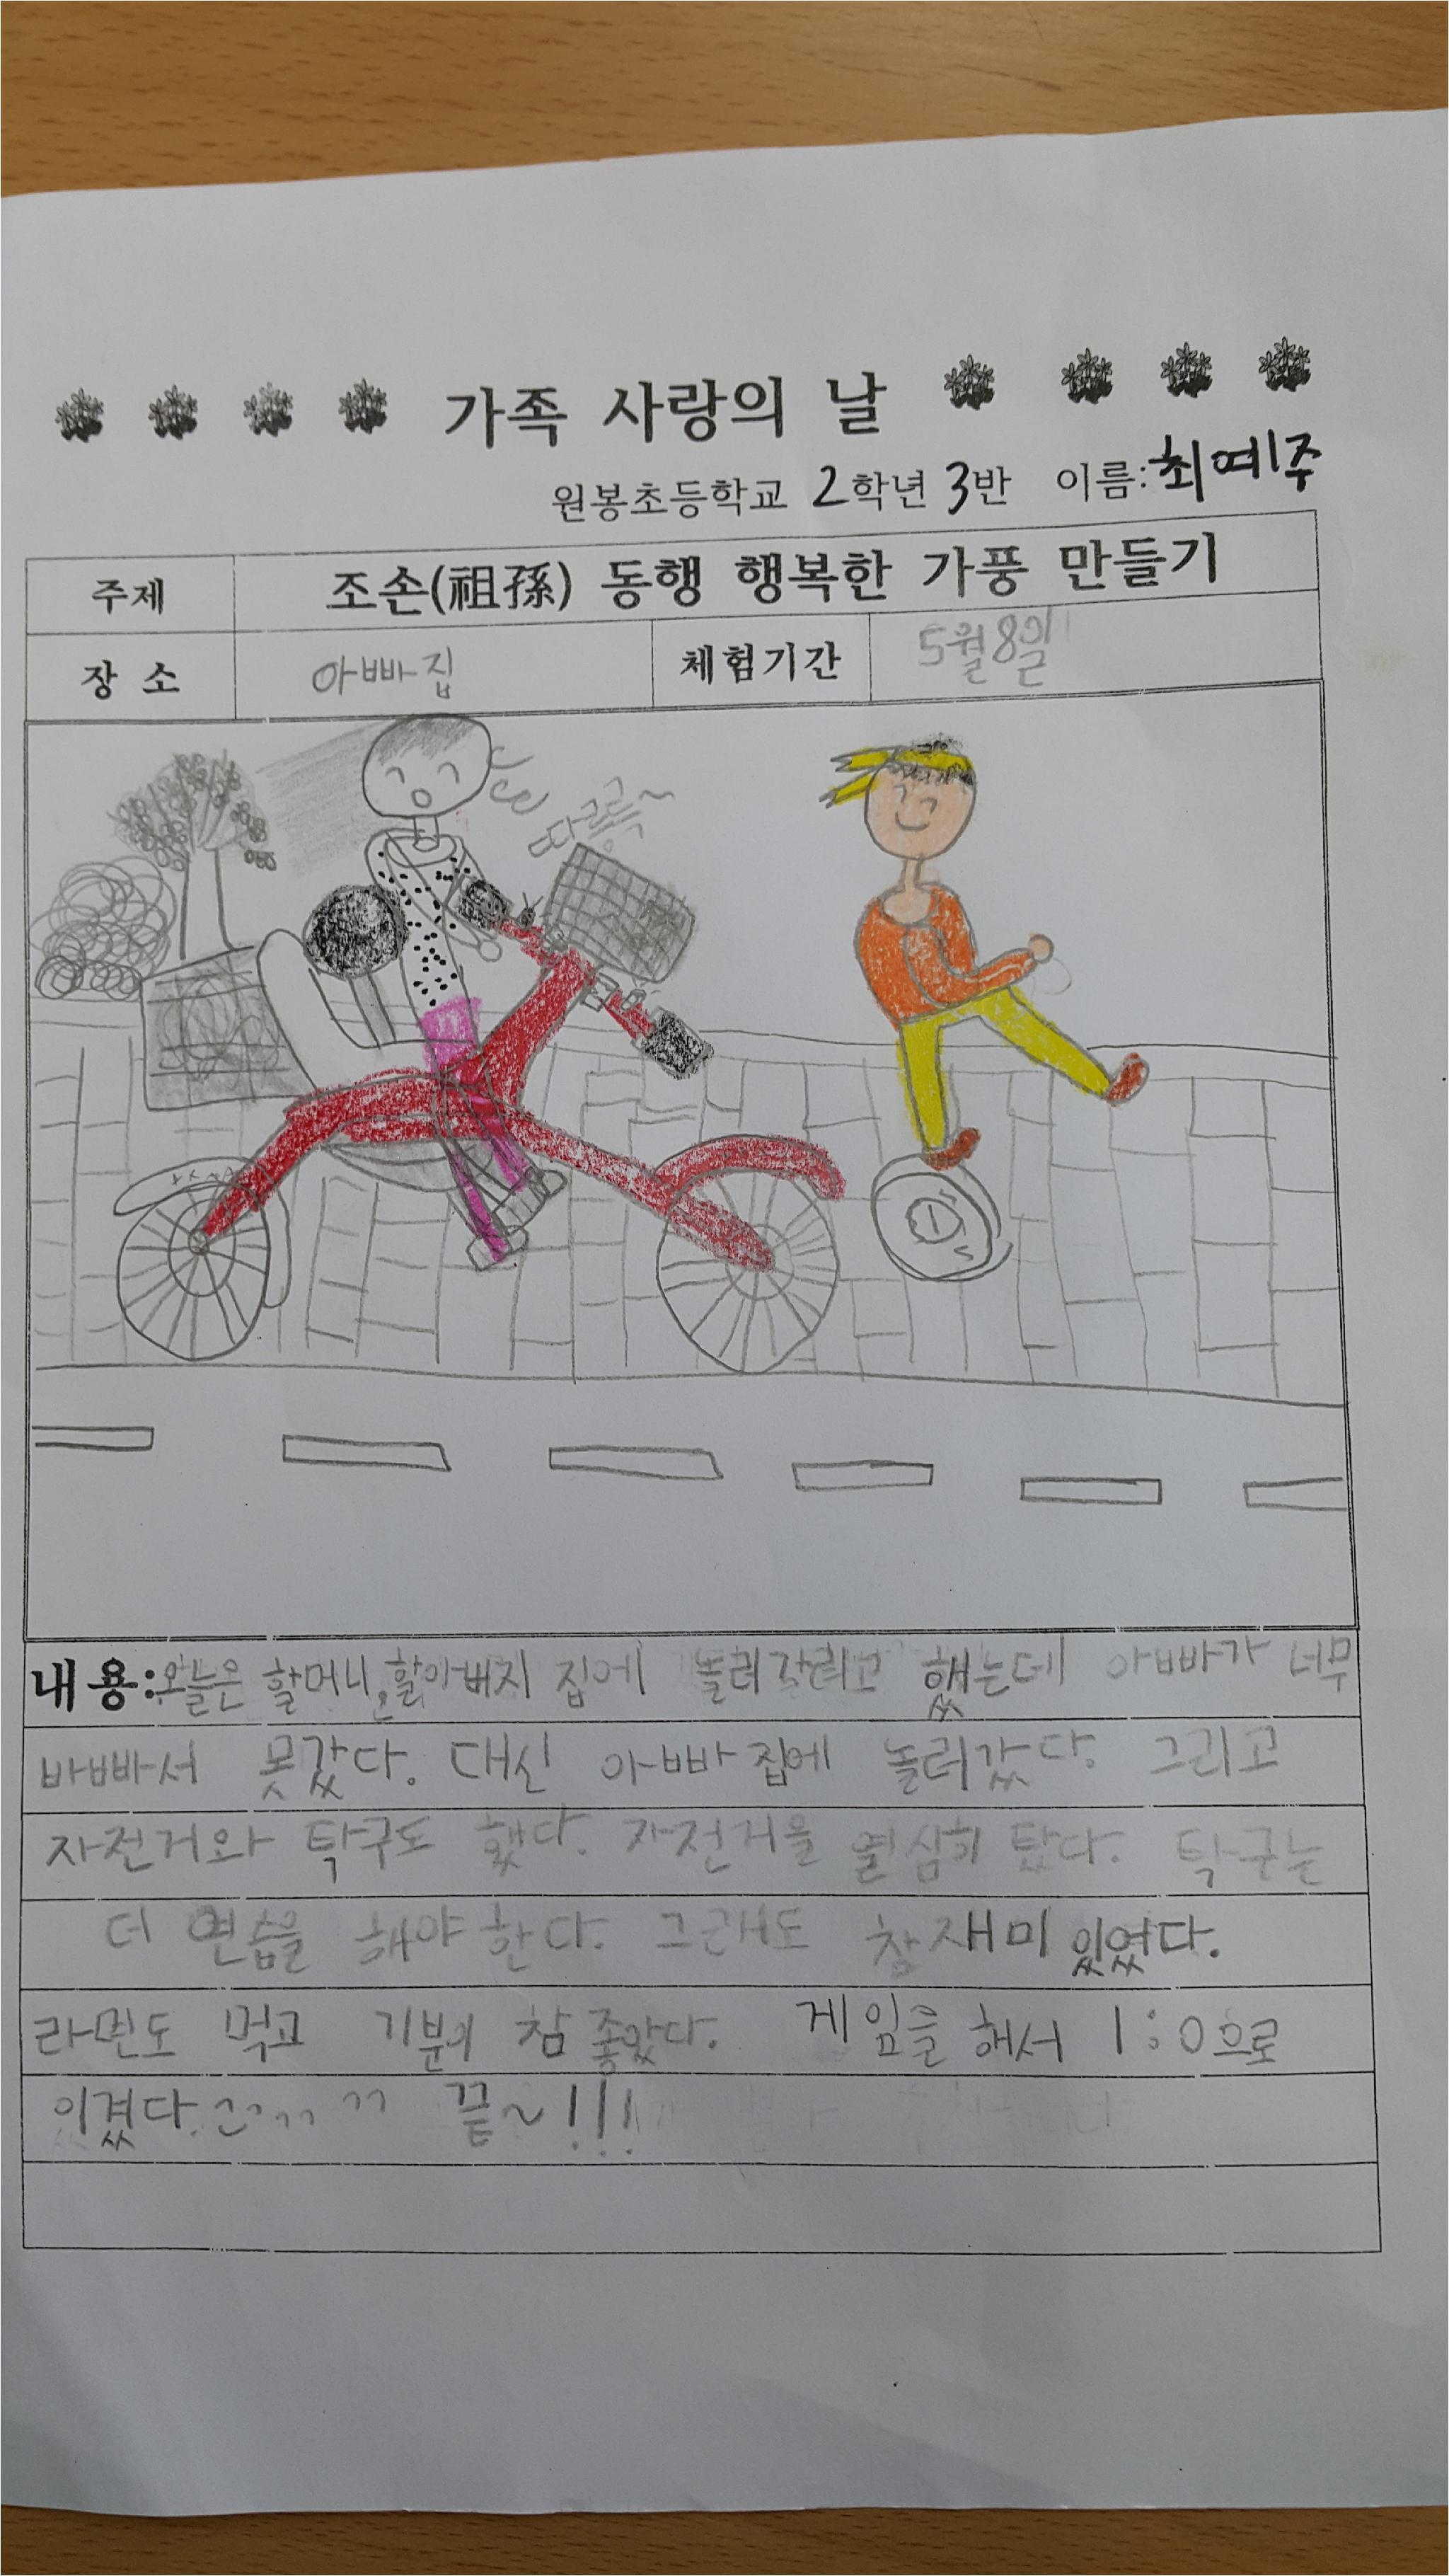 가족 사랑의 날
원봉초등학교 2학년 3반 이름:최예주
주제 조손(祖孫) 동행 행복한 가풍 만들기
장 소 아빠집 체험기간 5월8일
따르릉~
내용:오늘은 할머니,할아버지 집에 놀러갈려고 했는데 아빠가 너무
바빠서 못갔다. 대신 아빠집에 놀러갔다. 그리고
자전거와 탁구도 했다. 자전거을 열심히 탔다. 탁구는
더 연습을 해야한다. 그래도 참재미 있었다.
라면도 먹고 기분이 참 좋았다. 게임을 해서 1:0으로
이겼다. 끝~!!!